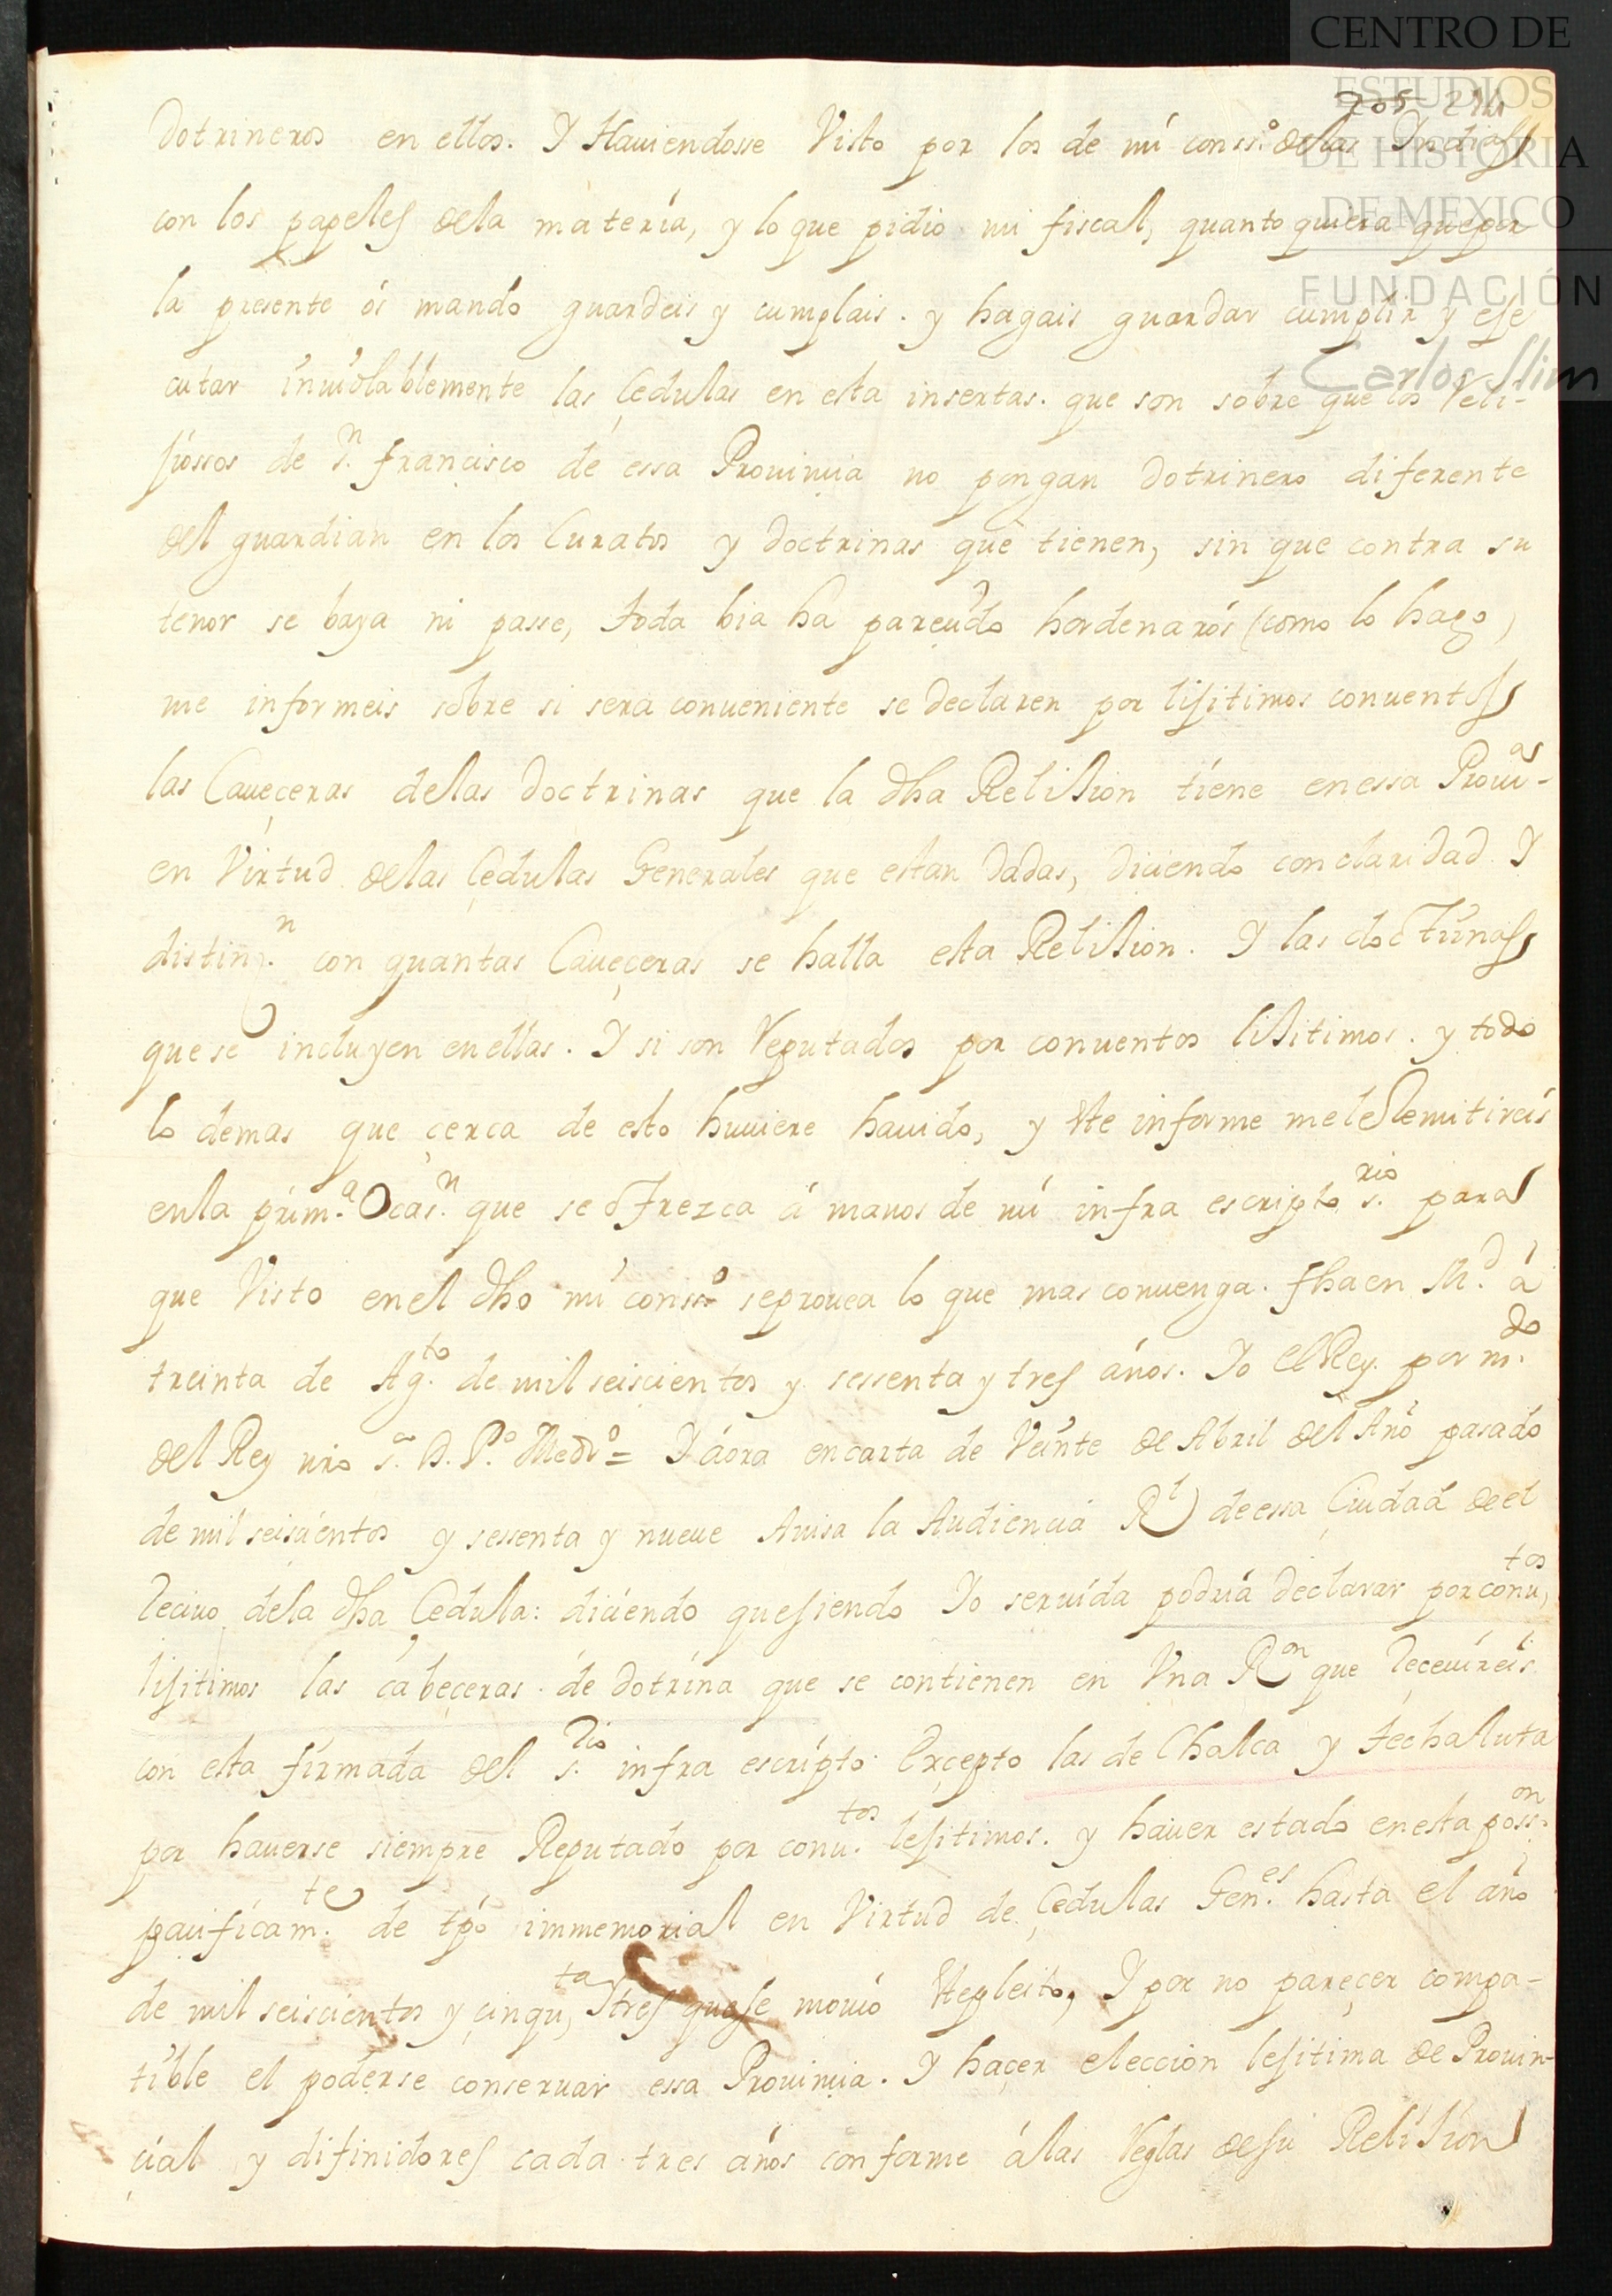 CENTRO DE
ESTUDIOS
DE HISTORIA
DE MEXICO
FUNDACIÓN
Carlos Slim
205 214
Dotrineros en ellos. Y Hauiendosse Visto por los de mi conss.o delas Yndias
con los papeles dela materia, y lo que pidio mi fiscal, quanto quiera que por
la presente ós mando guardeis y cumplais. y hagais guardar cumplir y eje
cutar inuiolablemente las Çedulas en esta insertas. que son sobre que los Reli-
jiossos de s.n francisco de essa Prouinçia no pongan Dotrinero diferente
del guardian en los Curatos y doctrinas que tienen, sin que contra su
tenor se baya ni passe, toda bia ha pareçido hordenarós (como lo hago)
me informeis sobre si sera conueniente se declaren por lisitimos conuentos
las Caueçeras delas doctrinas que la dha Relision tiene enessa Proui.as
en Virtud delas Çedulas Generales que estan dadas, diciendo con claridad Y
distinç.n con quantas Caueçeras se halla esta Relision. Y las doctrinas
que se incluyen en ellas. Y si son Reputados por conuentos lisitimos. y todo
lo demas que çerca de esto huuiere hauido, y este informe mele Remitireis
enla prim.a Ocas.n que se ofrezca á manos de mi infra escripto s.rio para
que Visto enel dho mi conss.o seprouea lo que mas conuenga. fha en M.d á
treinta de Ag.to de mil seiscientos y sessenta y tres años. Yo el Rey. por m.do
del Rey nro s.r D. P.o Med.o = Y áora en carta de Veinte de Abril del Año pasado
de mil seiscientos y sessenta y nueue Auisa la Audiencia R.l de essa Çiudad de el
Reciuo dela dha Çedula: diciendo que siendo Yo seruida podria declarar por conu.tos
lisitimos las cabeçeras de dotrina que se contienen en Vna R.on que Reçeuireis
con esta firmada del s.rio infra escripto. Excepto las de Chalca y techaluta
por hauerse siempre Reputado por conu.tos lesitimos. y hauer estado enesta poss.on
paçificam.te de tpo immemorial en Virtud de Çedulas Gen.es hasta el año
de mil seiscientos y çinqu.ta Ytres que se mouió este pleito, Y por no pareçer compa-
tible el poderse conseruar essa Prouinçia. Y haçer elección lesitima de Prouin-
çial y difinidores cada tres años conforme álas Reglas de su Relision